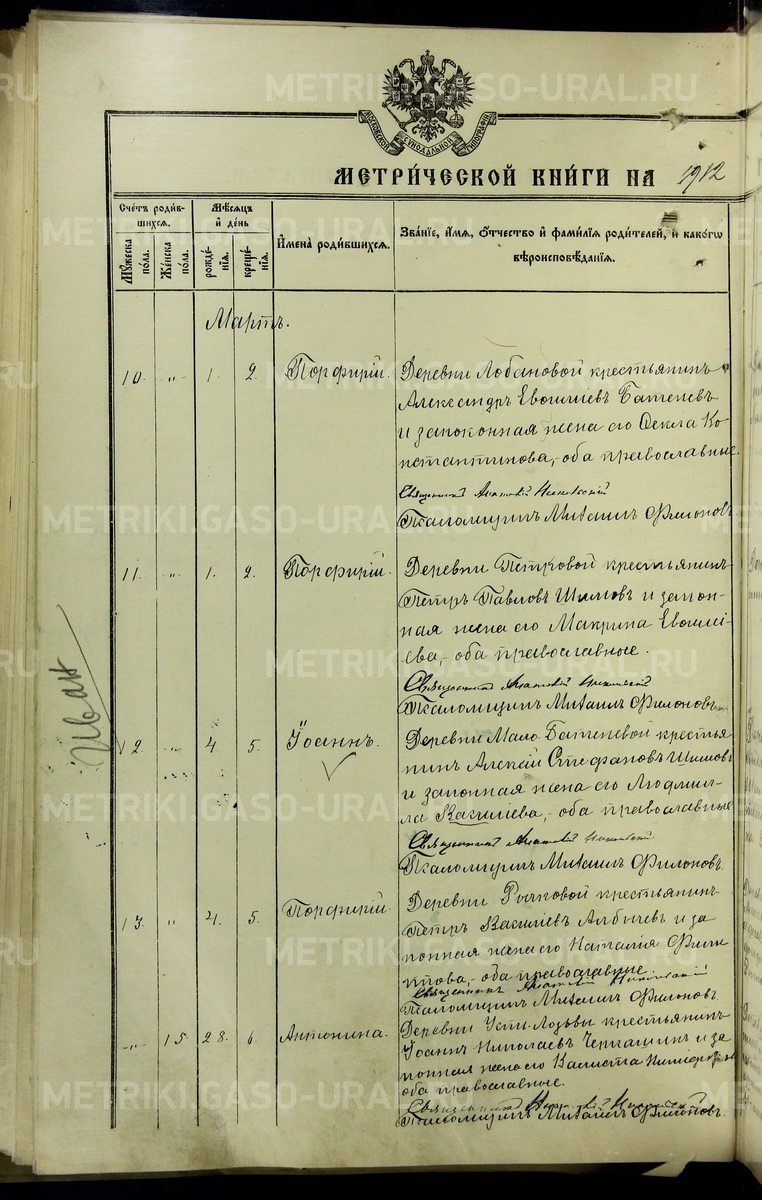 METRIKI.GASO-URAL.RU
МОСКОВСКОЙ СѴНОДАЛЬНОЙ ТИПОГРАФІИ
МЕТРИ́ЧЕСКОЙ КНИ́ГИ НА 1912
Сче́тъ роди́вшихсѧ.
Мꙋ́жеска по́ла.
Же́нска по́ла.
Мѣ́сѧцъ и҆ де́нь
рожде́нїѧ.
креще́нїѧ.
И҆мена̀ роди́вшихсѧ.
Зва́нїе, и҆́мѧ, ѻ҆́тчество и҆ фами́лїѧ роди́телей, и҆ како́гѡ
вѣроисповѣ́данїѧ.
Мартъ.
10. " 1. 2. Порфирій.
Деревни Лобановой крестьянинъ
Александръ Евѳиміевъ Батеневъ
и законная жена его Ѳекла Ко
нстантинова, оба православные.
Священникъ
Псаломщикъ Михаилъ Филоновъ
11. " 1. 2. Порфирій.
Деревни Петровой крестьянинъ
Петръ Павловъ Шиловъ и закон-
ная жена его Макрина Евѳимі-
ева, оба православные.
Священникъ
Псаломщикъ Михаилъ Филоновъ
Иванъ
12. " 4. 5. Іоаннъ.
Деревни Мало Батеневой крестья
нинъ Алексій Стефановъ Шиловъ
и законная жена его Людмил-
ла Василіева, оба православные
Священникъ
Псаломщикъ Михаилъ Филоновъ.
13. " 4. 5. Порфирій.
Деревни крестьянинъ
Петръ Василіевъ и за
конная жена его Наталія Филип
пова, оба православные
Священникъ
Псаломщикъ Михаилъ Филоновъ
" 15. 28. 6. Антонина.
Деревни Усть-Лозьвы крестьянинъ
Іоаннъ Николаевъ и за
конная жена его
оба православные.
Священникъ
Псаломщикъ Михаилъ Филоновъ.